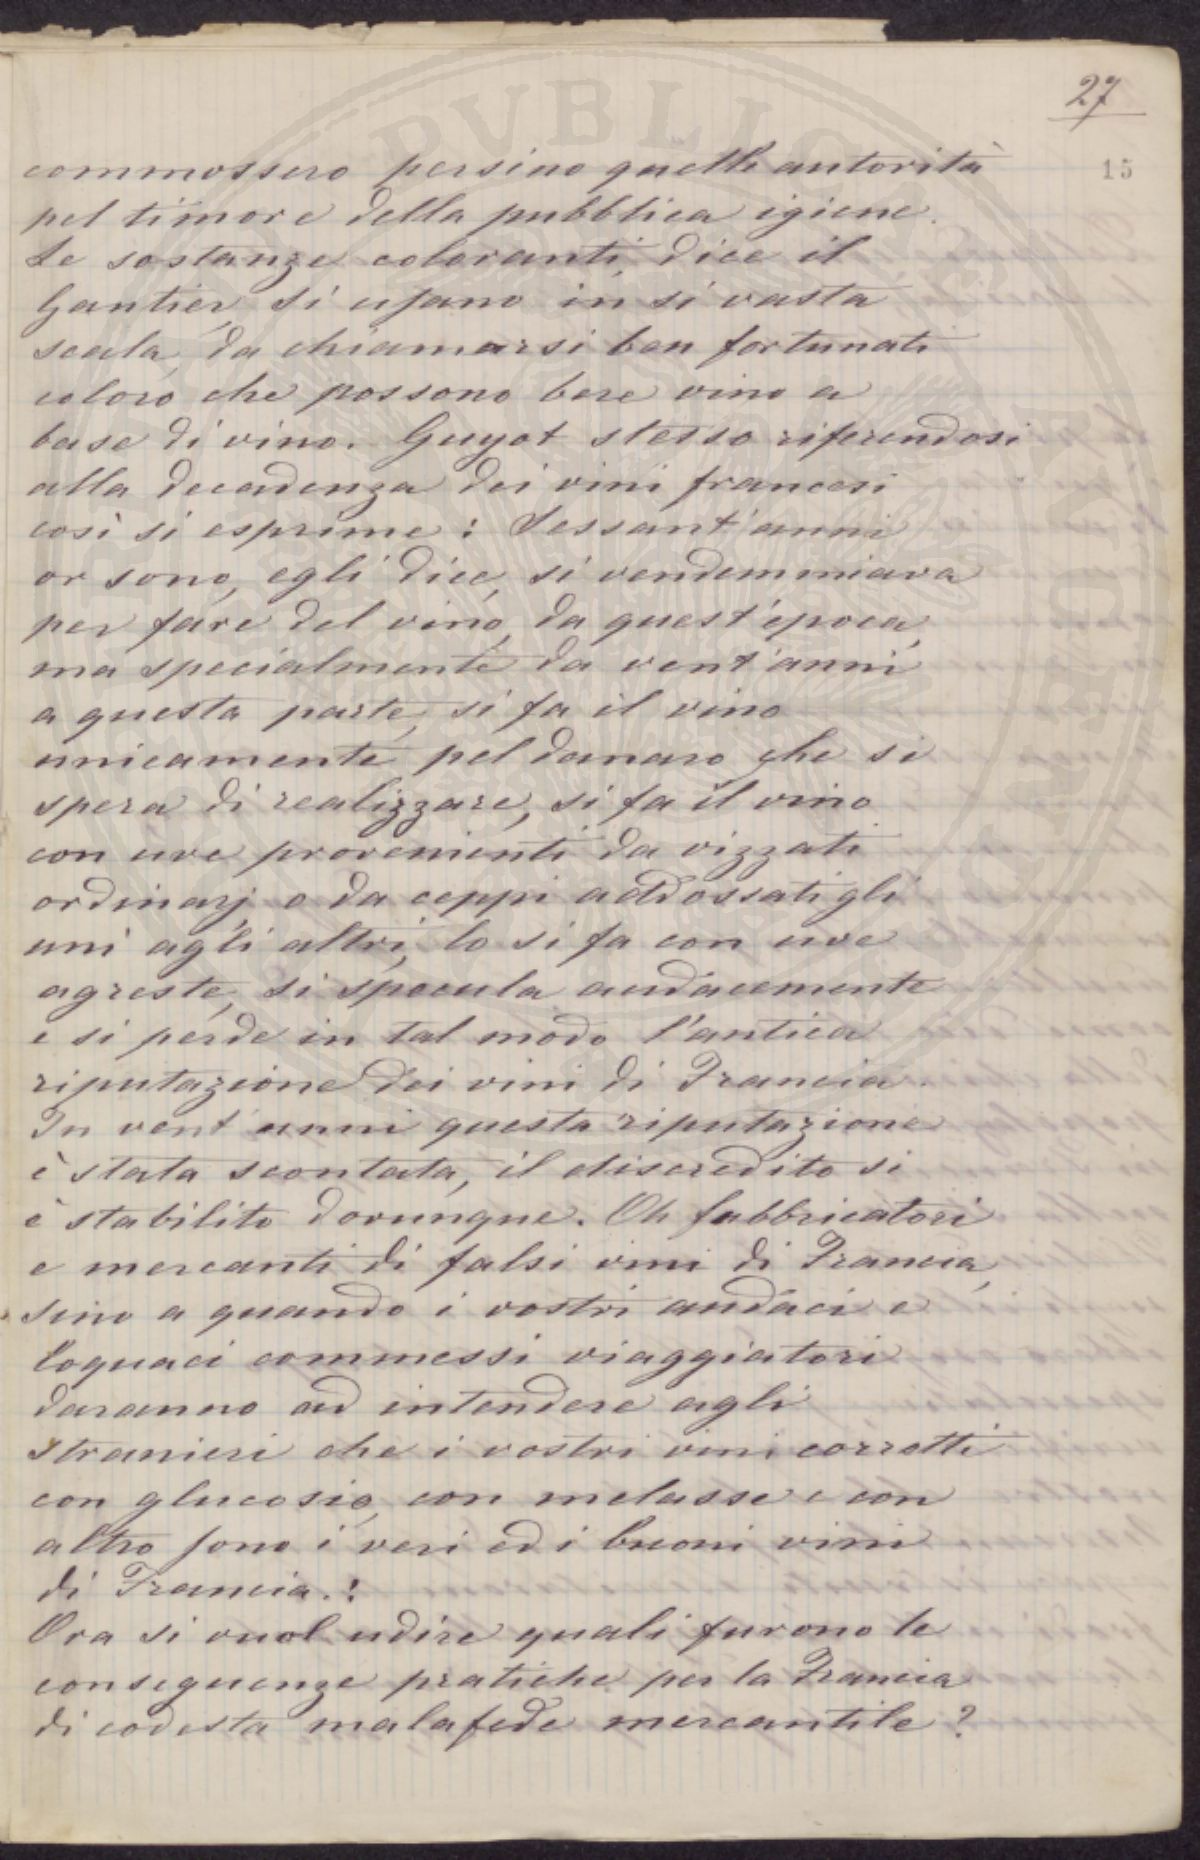 27
15
commossero persino quelle autorità
pel timore della pubblica igiene.
Le sostanze coloranti, dice il
Gautier, si usano in sì vasta
scala, da chiamarsi ben fortunati
coloro che possono bere vino a
base di vino. Guyot stesso riferendosi
alla decadenza dei vini francesi
così si esprime: Sessant'anni
or sono, egli dice, si vendemmiava
per fare del vino, da quest'epoca,
ma specialmente da vent'anni
a questa parte, si fa il vino
unicamente pel danaro che si
spera di realizzare, si fa il vino
con uve provenienti da vizzati
ordinarj o da ceppi addossati gli
uni agli altri, lo si fa con uve
agreste, si specula audacemente
e si perde in tal modo l'antica
riputazione dei vini di Francia.
In vent'anni questa riputazione
è stata scontata, il discredito si
è stabilito dovunque. Oh fabbricatori
e mercanti di falsi vini di Francia,
sino a quando i vostri audaci e
loquaci commessi viaggiatori
daranno ad intendere agli
stranieri che i vostri vini corrotti
con glucosio, con melasse e con
altro sono i veri ed i buoni vini
di Francia.!
Ora si vuol udire quali furono le
conseguenze pratiche per la Francia
di codesta malafede mercantile?